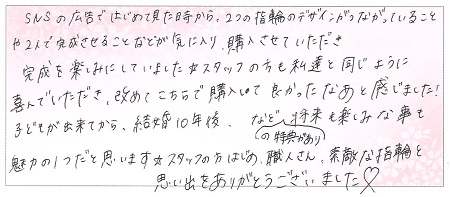 SNSの広告ではじめて見た時から、2つの指輪のデザインがつながっていること
や2人で完成させることなどが気に入り、購入させていただき
完成を楽しみにしていました☆スタッフの方も私達と同じように
喜んでいただき、改めてこちらで購入して良かったなあと感じました!
子どもが出来てから、結婚10年後、などの特典があり将来も楽しみな事も
魅力の1つだと思います☆スタッフの方はじめ、職人さん、素敵な指輪と
思い出をありがとうございました♡